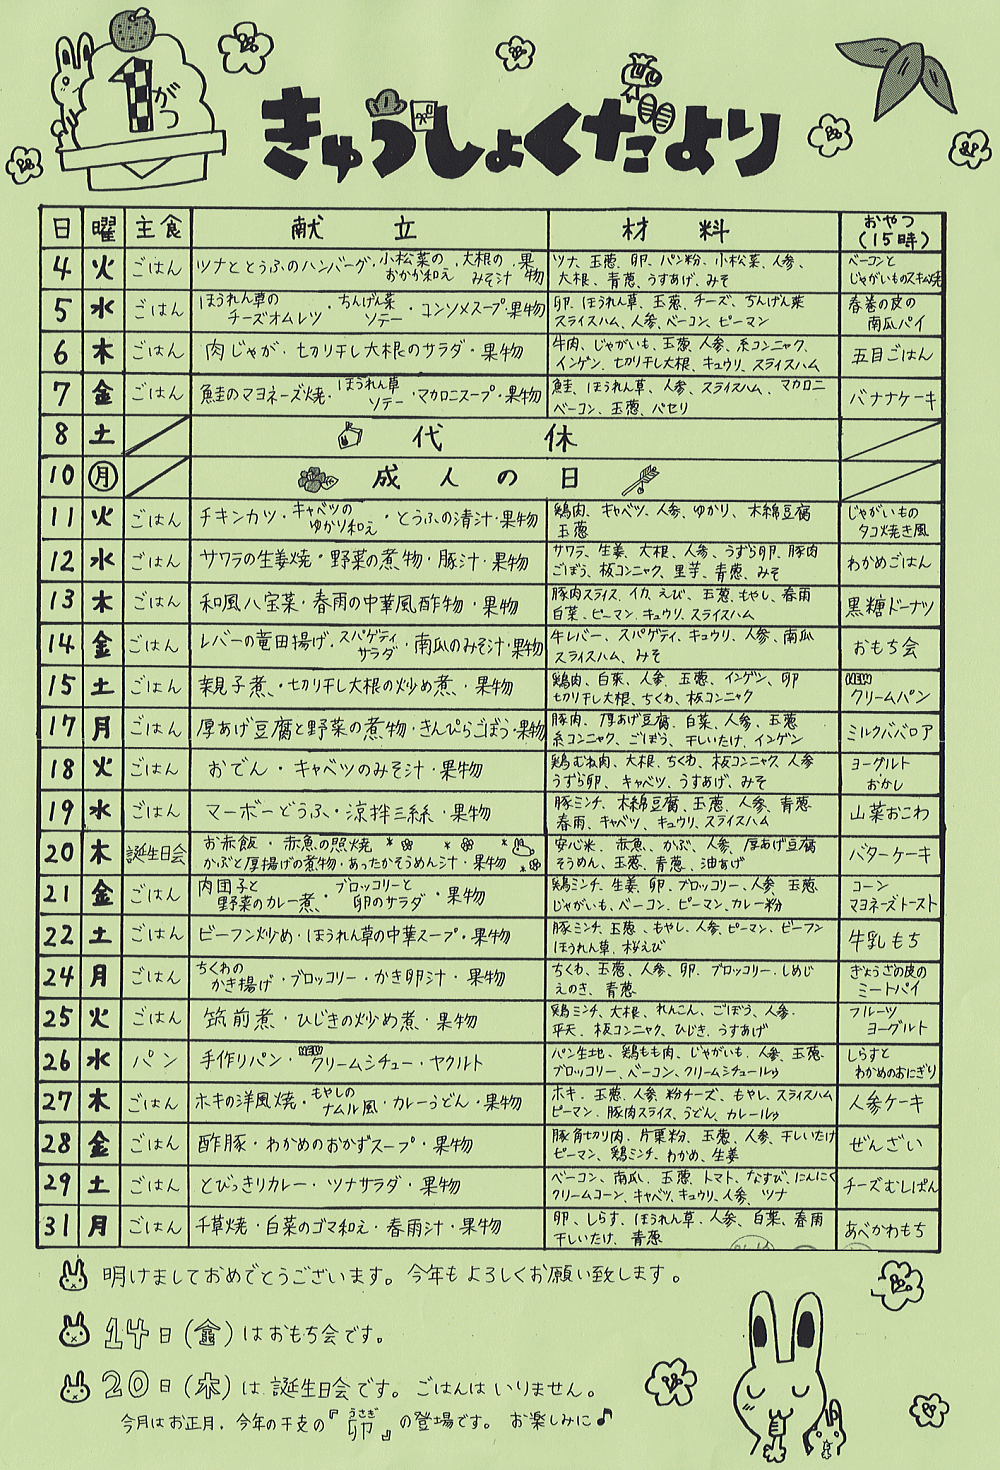 1がつ
きゅうしょくだより
日 曜 主食 献立 材料 おやつ(15時)
4 火 ごはん ツナととうふのハンバーグ・小松菜のおかか和え・大根のみそ汁・果物 ツナ、玉葱、卵、パン粉、小松菜、人参、 ベーコンと
大根、青葱、うすあげ、みそ じゃがいものスキム焼
5 水 ごはん ほうれん草のチーズオムレツ・ちんげん菜ソテー・コンソメスープ・果物 卵、ほうれん草、玉葱、チーズ、ちんげん菜 春巻の皮の
スライスハム、人参、ベーコン、ピーマン 南瓜パイ
6 木 ごはん 肉じゃが・切り干し大根のサラダ・果物 牛肉、じゃがいも、玉葱、人参、糸コンニャク、 五目ごはん
インゲン、切り干し大根、キュウリ、スライスハム
7 金 ごはん 鮭のマヨネーズ焼・ほうれん草ソテー・マカロニスープ・果物 鮭、ほうれん草、人参、スライスハム、マカロニ バナナケーキ
ベーコン、玉葱、パセリ
8 土 代休
10 月 成人の日
11 火 ごはん チキンカツ・キャベツのゆかり和え・とうふの清汁・果物 鶏肉、キャベツ、人参、ゆかり、木綿豆腐 じゃがいもの
玉葱 タコ焼き風
12 水 ごはん サワラの生姜焼・野菜の煮物・豚汁・果物 サワラ、生姜、大根、人参、うずら卵、豚肉 わかめごはん
ごぼう、板コンニャク、里芋、青葱、みそ
13 木 ごはん 和風八宝菜・春雨の中華風酢物・果物 豚肉スライス、イカ、えび、玉葱、もやし、春雨 黒糖ドーナツ
白菜、ピーマン、キュウリ、スライスハム
14 金 ごはん レバーの竜田揚げ・スパゲティサラダ・南瓜のみそ汁・果物 牛レバー、スパゲティ、キュウリ、人参、南瓜 おもち会
スライスハム、みそ
15 土 ごはん 親子煮・切り干し大根の炒め煮・果物 鶏肉、白菜、人参、玉葱、インゲン、卵 NEW
切り干し大根、ちくわ、板コンニャク クリームパン
17 月 ごはん 厚あげ豆腐と野菜の煮物・きんぴらごぼう・果物 豚肉、厚あげ豆腐、白菜、人参、玉葱 ミルクババロア
糸コンニャク、ごぼう、干しいたけ、インゲン
18 火 ごはん おでん・キャベツのみそ汁・果物 鶏むね肉、大根、ちくわ、板コンニャク、人参 ヨーグルト
うずら卵、キャベツ、うすあげ、みそ おかし
19 水 ごはん マーボーどうふ・涼拌三絲・果物 豚ミンチ、木綿豆腐、玉葱、人参、青葱 山菜おこわ
春雨、キャベツ、キュウリ、スライスハム
20 木 誕生日会 お赤飯・赤魚の照焼 安心米、赤魚、かぶ、人参、厚あげ豆腐 バターケーキ
かぶと厚揚げの煮物・あったかそうめん汁・果物 そうめん、玉葱、青葱、油あげ
21 金 ごはん 肉団子と野菜のカレー煮・ブロッコリーと卵のサラダ・果物 鶏ミンチ、生姜、卵、ブロッコリー、人参、玉葱 コーン
じゃがいも、ベーコン、ピーマン、カレー粉 マヨネーズトースト
22 土 ごはん ビーフン炒め・ほうれん草の中華スープ・果物 豚ミンチ、玉葱、もやし、人参、ピーマン、ビーフン 牛乳もち
ほうれん草、桜えび
24 月 ごはん ちくわのかき揚げ・ブロッコリー・かき卵汁・果物 ちくわ、玉葱、人参、卵、ブロッコリー、しめじ ぎょうざの皮の
えのき、青葱 ミートパイ
25 火 ごはん 筑前煮・ひじきの炒め煮・果物 鶏ミンチ、大根、れんこん、ごぼう、人参、 フルーツ
平天、板コンニャク、ひじき、うすあげ ヨーグルト
26 水 パン 手作りパン・NEWクリームシチュー・ヤクルト パン生地、鶏もも肉、じゃがいも、人参、玉葱、 しらすと
ブロッコリー、ベーコン、クリームシチュールゥ わかめのおにぎり
27 木 ごはん ホキの洋風焼・もやしのナムル風・カレーうどん・果物 ホキ、玉葱、人参、粉チーズ、もやし、スライスハム 人参ケーキ
ピーマン、豚肉スライス、うどん、カレールゥ
28 金 ごはん 酢豚・わかめのおかずスープ・果物 豚角切り肉、片栗粉、玉葱、人参、干しいたけ ぜんざい
ピーマン、鶏ミンチ、わかめ、生姜
29 土 ごはん とびっきりカレー・ツナサラダ・果物 ベーコン、南瓜、玉葱、トマト、なすび、にんにく チーズむしぱん
クリームコーン、キャベツ、キュウリ、人参、ツナ
31 月 ごはん 千草焼・白菜のゴマ和え・春雨汁・果物 卵、しらす、ほうれん草、人参、白菜、春雨 あべかわもち
干しいたけ、青葱
明けましておめでとうございます。今年もよろしくお願い致します。
14日(金)はおもち会です。
20日(木)は誕生日会です。ごはんはいりません。
今月はお正月、今年の干支の『卯』の登場です。お楽しみに♪
うさぎ